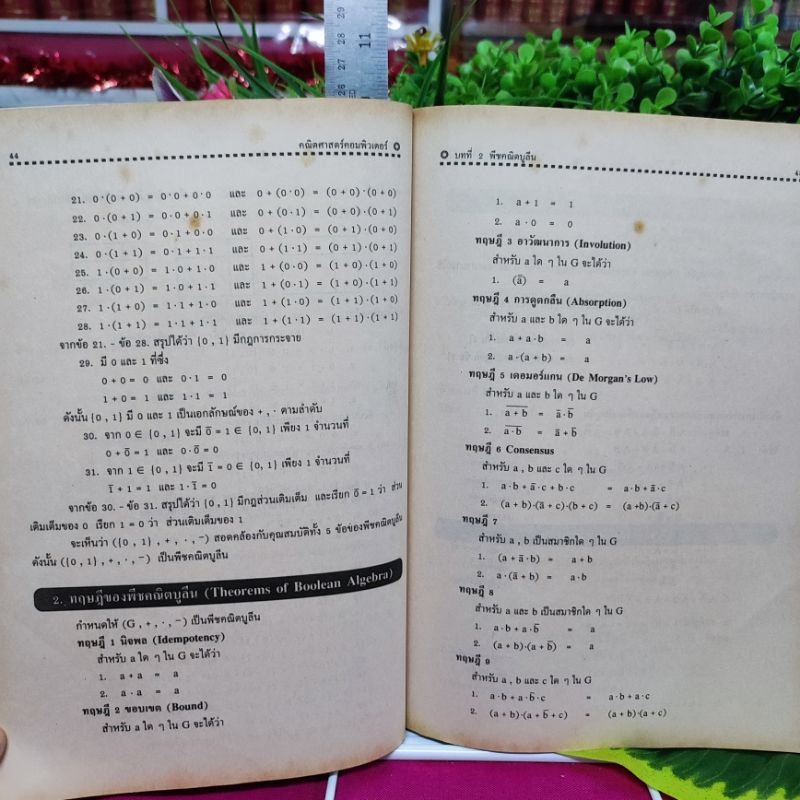 29
28
11
27
26
44
คณิตศาสตร์คอมพิวเตอร์
21. 0·(0+0) = 0·0+0·0 และ 0+(0·0) = (0+0)·(0+0)
22. 0·(0+1) = 0·0+0·1 และ 0+(0·1) = (0+0)·(0+1)
23. 0·(1+0) = 0·1+0·0 และ 0+(1·0) = (0+1)·(0+0)
24. 0·(1+1) = 0·1+1·1 และ 0+(1·1) = (0+1)·(0+1)
25. 1·(0+0) = 1·0+1·0 และ 1+(0·0) = (1+0)·(1+0)
26. 1·(0+1) = 1·0+1·1 และ 1+(0·1) = (1+0)·(1+1)
27. 1·(1+0) = 1·1+1·0 และ 1+(1·0) = (1+1)·(1+0)
28. 1·(1+1) = 1·1+1·1 และ 1+(1·1) = (1+1)·(1+1)
จากข้อ 21. - ข้อ 28. สรุปได้ว่า {0 , 1} มีกฎการกระจาย
29. มี 0 และ 1 ที่ซึ่ง
0+0 = 0 และ 0·1 = 0
1+0 = 1 และ 1·1 = 1
ดังนั้น {0 , 1} มี 0 และ 1 เป็นเอกลักษณ์ของ + , · ตามลำดับ
30. จาก 0 ∈ {0 , 1} จะมี 0̅ = 1 ∈ {0 , 1} เพียง 1 จำนวนที่
0+0̅ = 1 และ 0·0̅ = 0
31. จาก 1 ∈ {0 , 1} จะมี 1̅ = 0 ∈ {0 , 1} เพียง 1 จำนวนที่
1̅+1 = 1 และ 1·1̅ = 0
จากข้อ 30. - ข้อ 31. สรุปได้ว่า {0 , 1} มีกฎส่วนเติมเต็ม และเรียก 0̅ = 1 ว่า ส่วน
เติมเต็มของ 0 เรียก 1 = 0 ว่า ส่วนเติมเต็มของ 1
จะเห็นว่า ({0 , 1} , + , · , ‾) สอดคล้องกับคุณสมบัติทั้ง 5 ข้อของพีชคณิตบูลีน
ดังนั้น ({0 , 1} , + , · , ‾) เป็นพีชคณิตบูลีน
2. ทฤษฎีของพีชคณิตบูลีน (Theorems of Boolean Algebra)
กำหนดให้ (G , + , · , ‾) เป็นพีชคณิตบูลีน
ทฤษฎี 1 นิจพล (Idempotency)
สำหรับ a ใด ๆ ใน G จะได้ว่า
1. a+a = a
2. a·a = a
ทฤษฎี 2 ขอบเขต (Bound)
สำหรับ a ใด ๆ ใน G จะได้ว่า
บทที่ 2 พีชคณิตบูลีน
1. a+1 = 1
2. a·0 = 0
ทฤษฎี 3 อาวัฒนาการ (Involution)
สำหรับ a ใด ๆ ใน G จะได้ว่า
1. (a̅) = a
ทฤษฎี 4 การดูดกลืน (Absorption)
สำหรับ a และ b ใด ๆ ใน G จะได้ว่า
1. a+a·b = a
2. a·(a+b) = a
ทฤษฎี 5 เดอมอร์แกน (De Morgan's Low)
สำหรับ a และ b ใด ๆ ใน G
1. a̅+̅b̅ = a̅·b̅
2. a̅·̅b̅ = a̅+b̅
ทฤษฎี 6 Consensus
สำหรับ a , b และ c ใด ๆ ใน G
1. a·b+a̅·c+b·c = a·b+a̅·c
2. (a+b)·(a̅+c)·(b+c) = (a+b)·(a̅+c)
ทฤษฎี 7
สำหรับ a , b เป็นสมาชิกใด ๆ ใน G
1. (a+a̅·b) = a+b
2. a·(a̅+b) = a·b
ทฤษฎี 8
สำหรับ a และ b เป็นสมาชิกใด ๆ ใน G
1. a·b+a·b̅ = a
2. (a+b)·(a+b̅) = a
ทฤษฎี 9
สำหรับ a , b และ c ใด ๆ ใน G
1. a·b+a·b̅·c = a·b+a·c
2. (a+b)·(a+b̅+c) = (a+b)·(a+c)